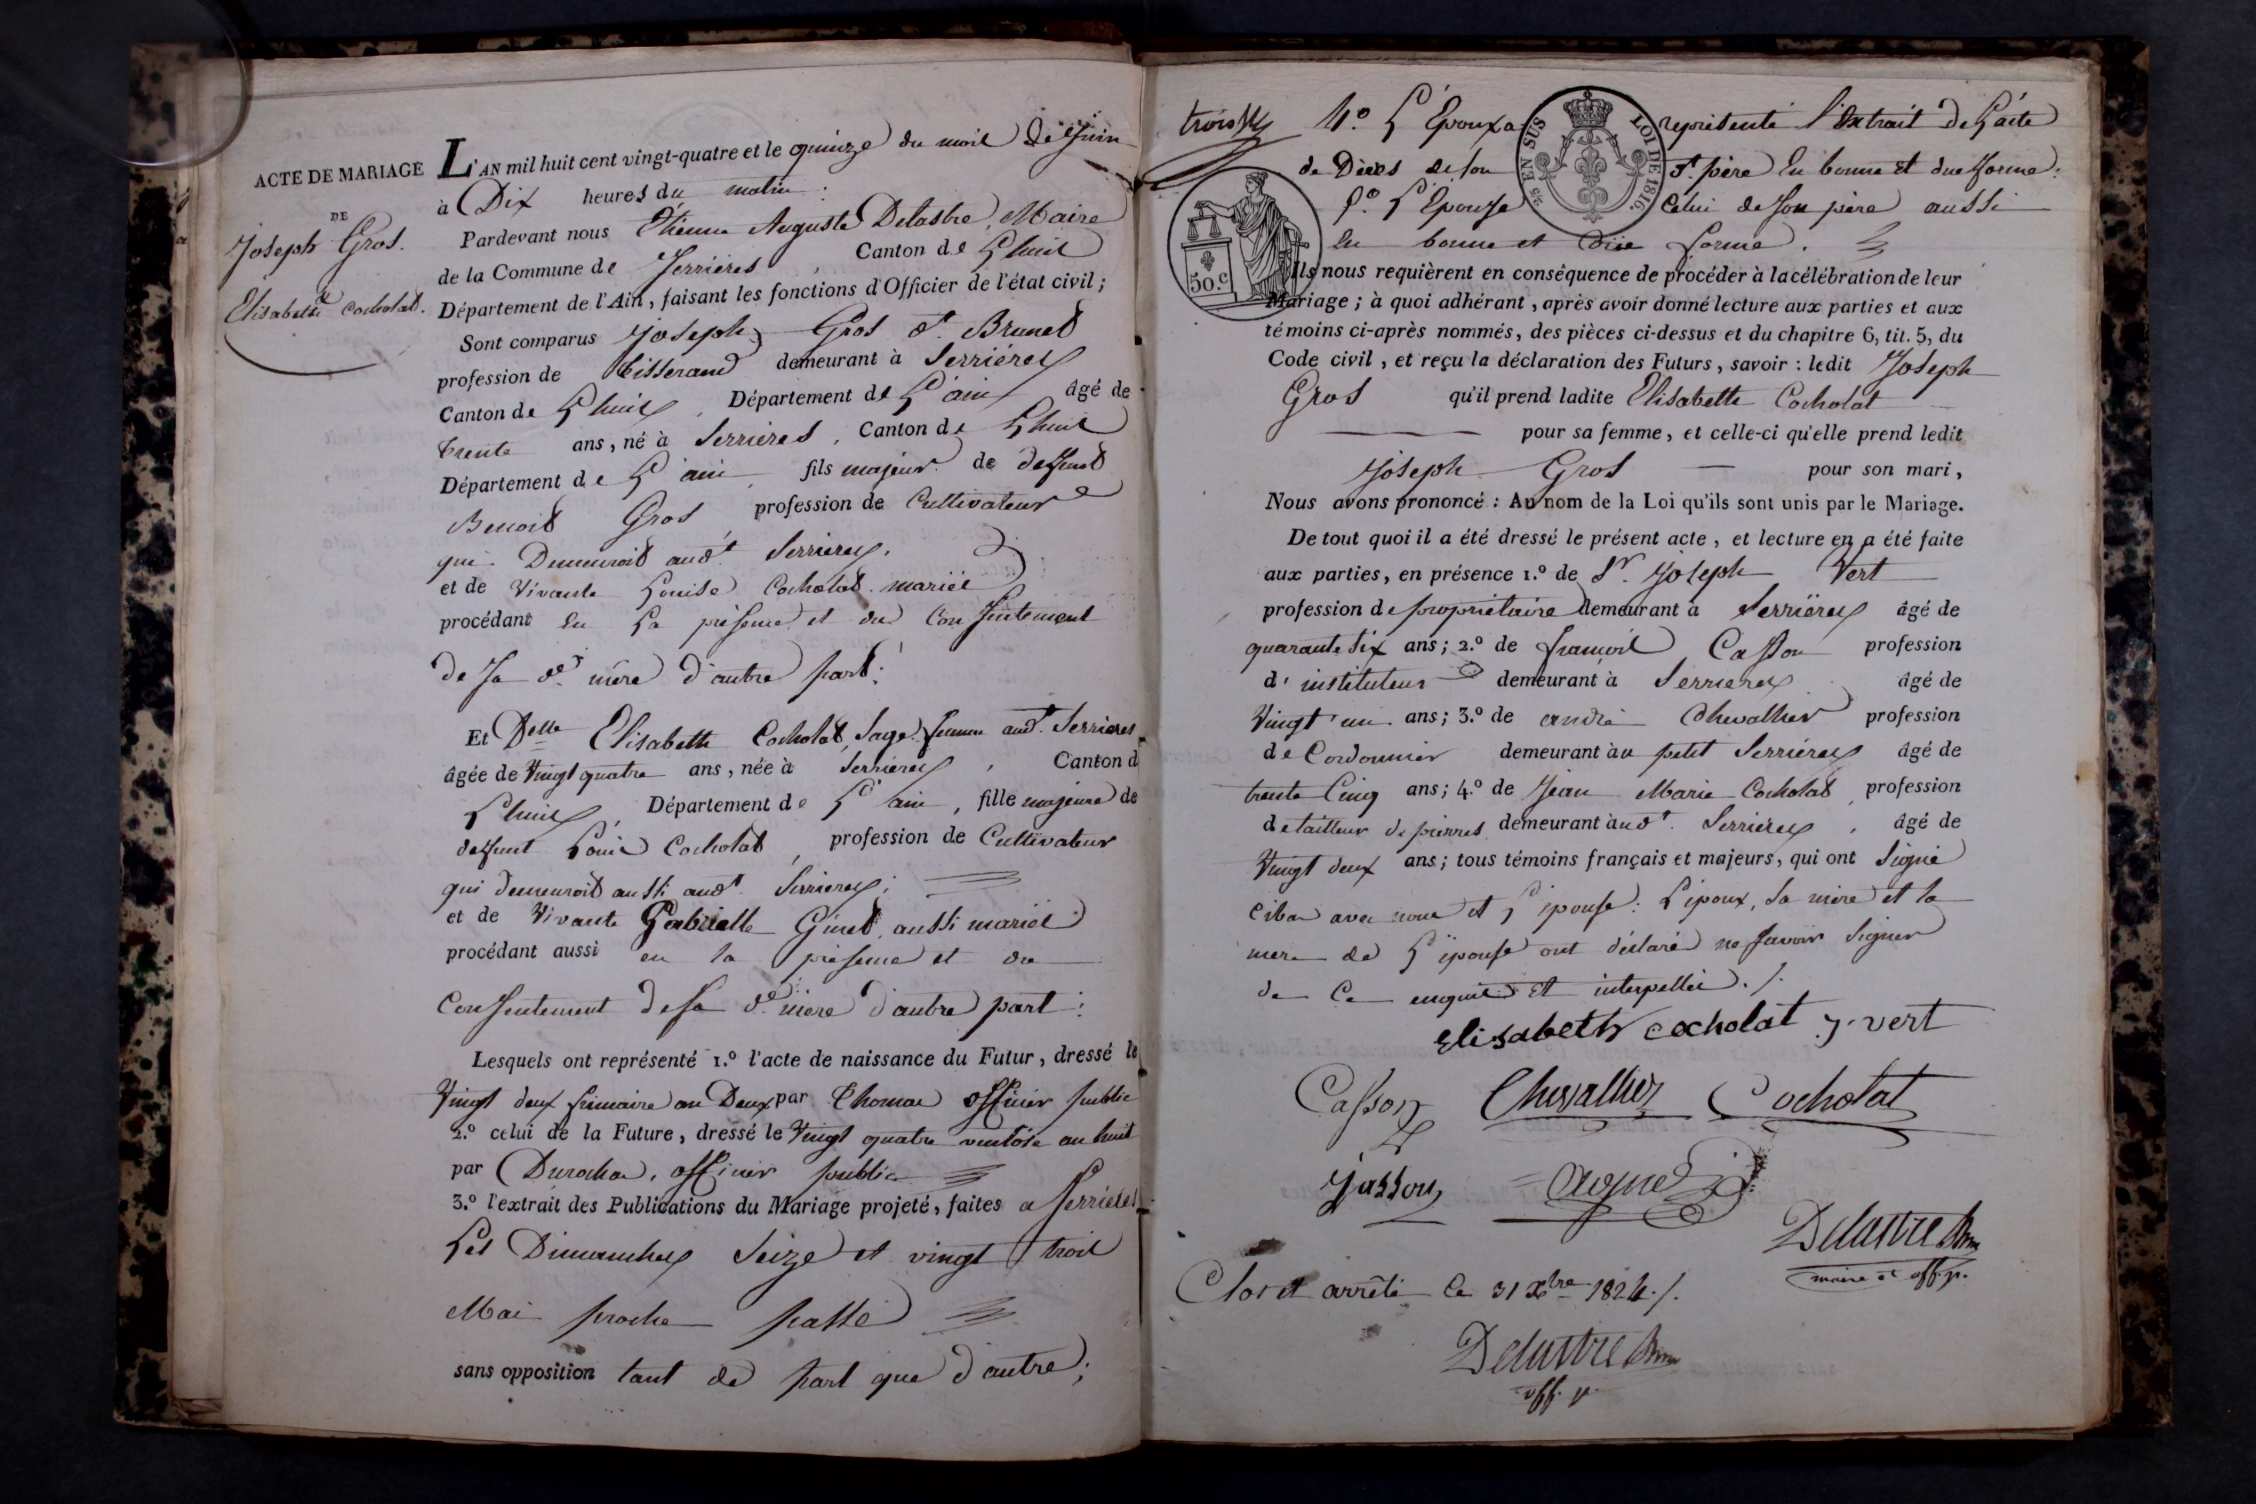 ACTE DE MARIAGE
DE
Joseph Gros.
Elisabeth Cocholat.
L'AN mil huit cent vingt-quatre et le quinze du mois de Juin
à Dix heures du matin :
Pardevant nous Etienne Auguste Delastre, Maire
de la Commune de Serrières, Canton de Lhuis
Département de l'Ain, faisant les fonctions d'Officier de l'état civil ;
Sont comparus Joseph Gros dt. Brunet
profession de tisserand demeurant à Serrières
Canton de Lhuis, Département de L'ain âgé de
trente ans, né à Serrières, Canton de Lhuis
Département de L'ain, fils majeur de deffunt
Benoit Gros, profession de Cultivateur
qui Demeuroit audt. Serrieres.
et de Vivante Louise Cocholat mariés
procédant en La présence et du Consentement
de sa de. mère d'autre part :
Et Delle Elisabeth Cocholat, Sage femme audt. Serrieres
âgée de Vingt quatre ans, née à Serrieres, Canton d
Lhuis, Département de L'ain, fille majeure de
deffunt Louis Cocholat, profession de Cultivateur
qui demeuroit aussi audt. Serrieres ;
et de Vivante Gabrielle Ginet, aussi mariés
procédant aussi en la présence et du
Consentement de sa de. mère d'autre part :
Lesquels ont représenté 1.º l'acte de naissance du Futur, dressé le
Vingt deux frimaire an Deux par Thomas officier public
2.º celui de la Future, dressé le Vingt quatre ventôse an huit
par Durochat, officier public
3.º l'extrait des Publications du Mariage projeté, faites a Serrieres
Les Dimanches Seize et vingt trois
Mai proche passé
sans opposition tant de part que d'autre ;
trois
4.º L'Epoux a représenté l'Extrait de L'acte
de Décès de son dt. père En bonne et due forme :
5.º L'Epouse celui de son père aussi
En bonne et düe forme.
25 EN SUS
LOI DE 1816.
50.c
Ils nous requièrent en conséquence de procéder à la célébration de leur
Mariage ; à quoi adhérant, après avoir donné lecture aux parties et aux
témoins ci-après nommés, des pièces ci-dessus et du chapitre 6, tit. 5, du
Code civil, et reçu la déclaration des Futurs, savoir : ledit Joseph
Gros qu'il prend ladite Elisabeth Cocholat
pour sa femme, et celle-ci qu'elle prend ledit
Joseph Gros pour son mari,
Nous avons prononcé : Au nom de la Loi qu'ils sont unis par le Mariage.
De tout quoi il a été dressé le présent acte, et lecture en a été faite
aux parties, en présence 1.º de Sr. Joseph Vert
profession de propriétaire demeurant à Serrières âgé de
quarante six ans ; 2.º de françois Casson profession
d'instituteur demeurant à Serrieres âgé de
Vingt un ans ; 3.º de andré Chevallier profession
de Cordonnier demeurant àu petit Serriéres âgé de
trente Cinq ans ; 4.º de Jean Marie Cocholat, profession
de tailleur de pierres demeurant àudt. Serrieres, âgé de
Vingt deux ans ; tous témoins français et majeurs, qui ont Signé
avec nous et L'épouse : L'époux, sa mère et la
mere de L'épouse ont déclaré ne savoir Signer
de Ce enquis et interpellés ./.
Elisabeth cocholat j. vert
Casson Chevallier Cocholat
Jasson
Delastre
maire et off. p.
Clos et arrêté Ce 31 xbre 1824 ./.
Delastre
off. p.